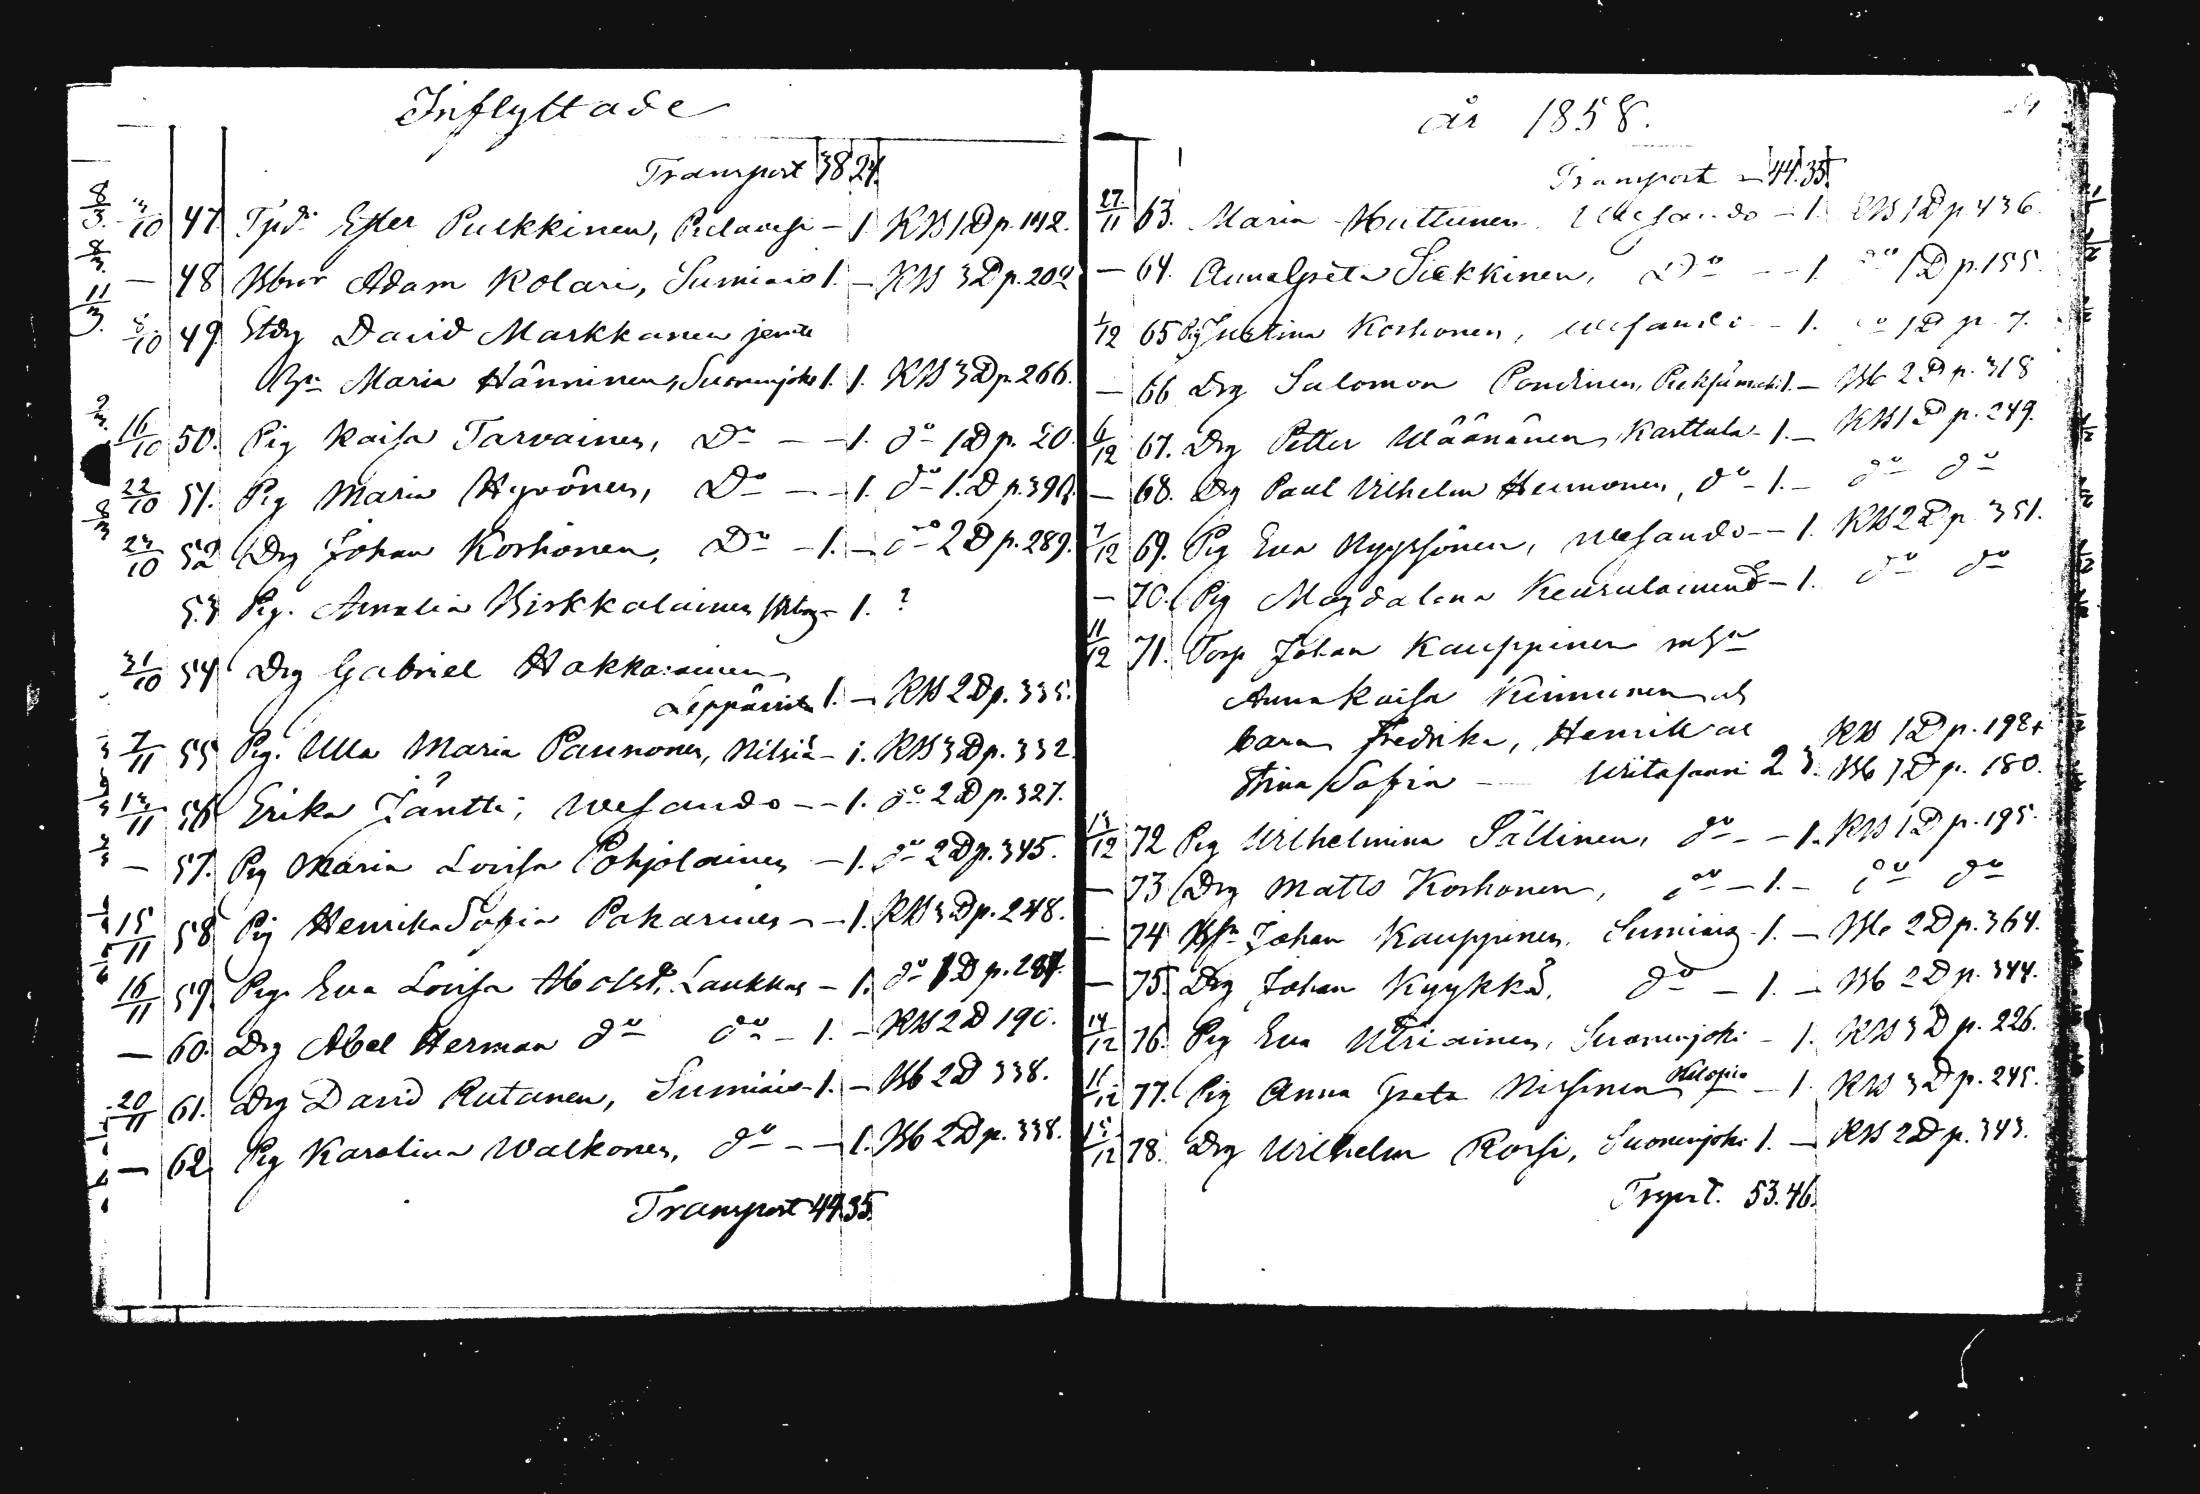 Inflyttade
Transport 38 24.
3/10 47 Tpd: Ester Pulkkinen, Pielavesi - 1. KW 1 D p. 142.
— 48 Adam Kolari, Sumiais 1. - KW 3 D p. 202
/10 49 Stdg David Markkanen jemte
Maria Hänninen, Suonenjoki 1. 1. KW 3 D p. 266.
16/10 50. Pig Kaisa Tarvainen, Do - - 1. do 1 D p. 20
22/10 51. Pig Maria Hyvönen, Do - - 1. do 1. D p. 390.
23/10 52 Drg Johan Korhonen, Do - 1. - do 2 D p. 289.
53 Pig. Amalia Kirkkalainen - 1. ?
31/10 54 Drg Gabriel Hakkarainen
Leppävirta 1. - KW 2 D p. 335.
7/11 55 Pig. Ulla Maria Paunonen, Nilsiä - 1. KW 3 D p. 332
13/11 56 Erika Jäntti, Wesando - - 1. do 2 D p. 327.
— 57. Pig Maria Lovisa Pohjolainen - 1. do 2 D p. 345.
15/11 58 Pig Henrika Sofia Pakarinen - - 1. KW 3 D p. 248.
16/11 59. Pig. Eva Lovisa Laukkas - 1. do 1 D p. 287.
— 60. Drg Abel Herman do do - 1. - KW 2 D 190.
20/11 61. Drg David Rutanen, Sumiais - 1. - Wb 2 D 338.
— 62. Pig Karolina Walkonen, do - - 1. Wb 2 D p. 338.
Transport 44.35.
år 1858.
Transport - 44.35.
27/11 63. Maria Huttunen Wesando - 1. KW 1 D p 436.
— 64. Anna Greta Siekkinen, Do - - 1. do 1 D p. 155.
1/12 65 Pig Justina Korhonen, Wesando - 1. do 1 D p. 7.
— 66 Drg Salomon Pondinen, Pieksämäki 1. - Wb 2 D p. 318
6/12 67. Drg Petter Wäänänen, Karttula - 1. - KW 1 D p. 249.
— 68. Drg Paul Vilhelm Heimonen, do - 1. - do do
7/12 69. Pig Eva Nyyssönen, Wesando - - 1. KW 2 D p. 351.
— 70. Pig Magdalena Keurulainen do - 1. do do
11/12 71. Torp Johan Kauppinen
Anna Kaisa Kinnunen
barn Fredrika, Henrik KW 1 D p. 198
Stina Sofia - Witasaari 2 3. Wb 1 D p. 180.
13/12 72 Pig Wilhelmina Sällinen, do - - 1. KW 1 D p. 195.
— 73 Drg Matts Korhonen, do - 1. - do do
— 74 Johan Kauppinen, Sumiais - 1. - Wb 2 D p. 364.
— 75. Drg Johan Kyykkä, do - 1. - Wb 2 D p. 344.
14/12 76. Pig Eva Utriainen, Suonenjoki - 1. KW 3 D p. 226.
/12 77. Pig Anna Greta Nissinen Kuopio - 1. KW 3 D p. 245.
15/12 78. Drg Wilhelm Korsi, Suonenjoki 1. - KW 2 D p. 343.
Trpt. 53.46.